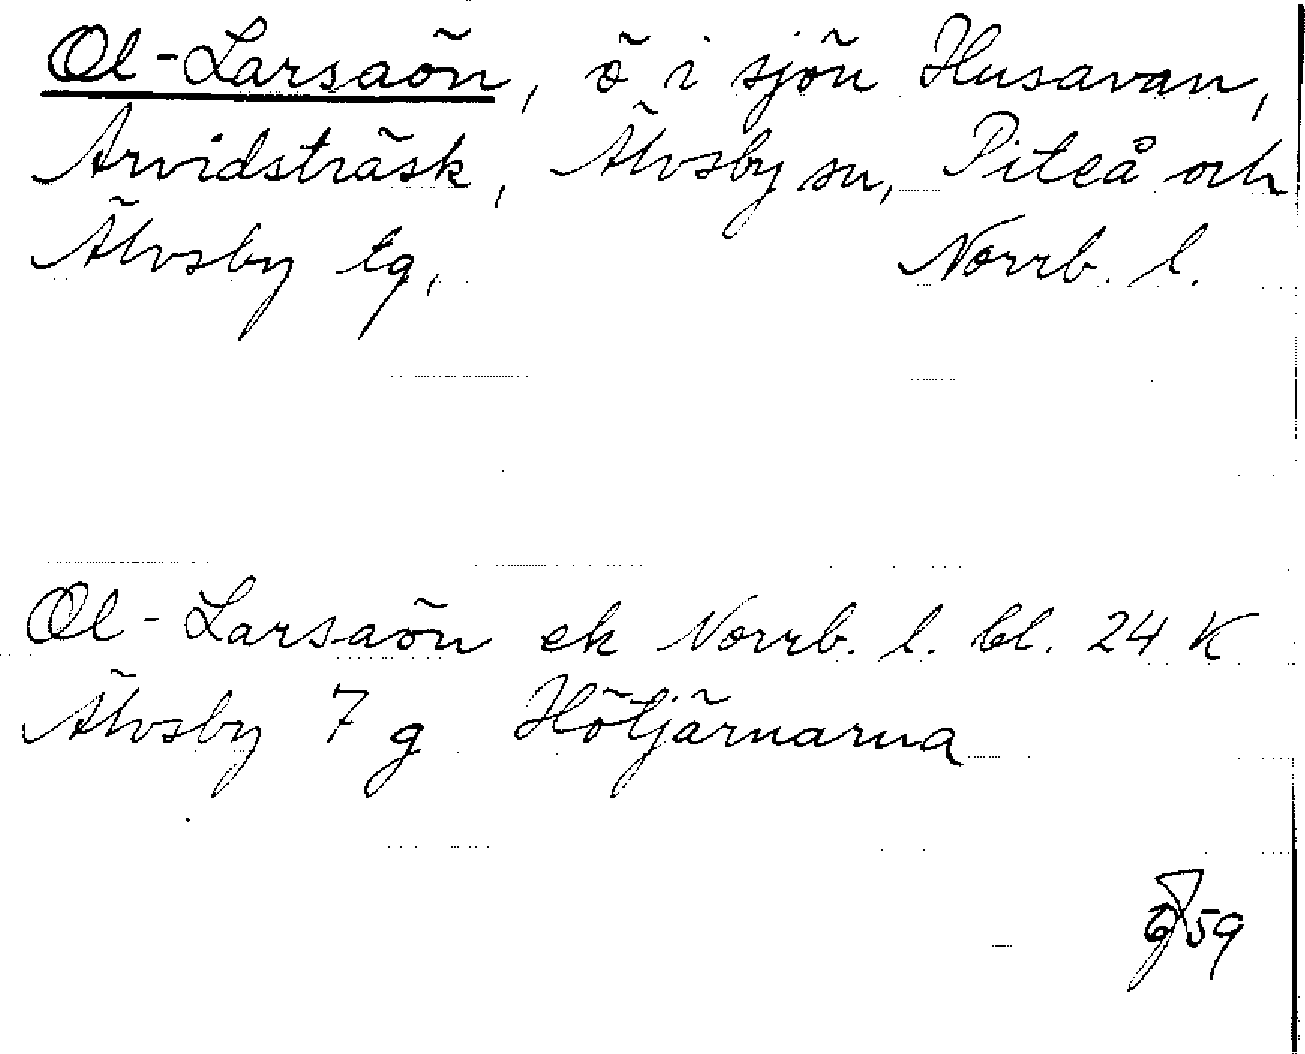 Ol-Larsaön, ö i sjön Husavan,
Arvidsträsk, Älvsby sn, Piteå och
Älvsby tg, Norrb. l.
Ol-Larsaön ek Norrb. l. bl. 24 K
Älvsby 7 g Hötjärnarna
59